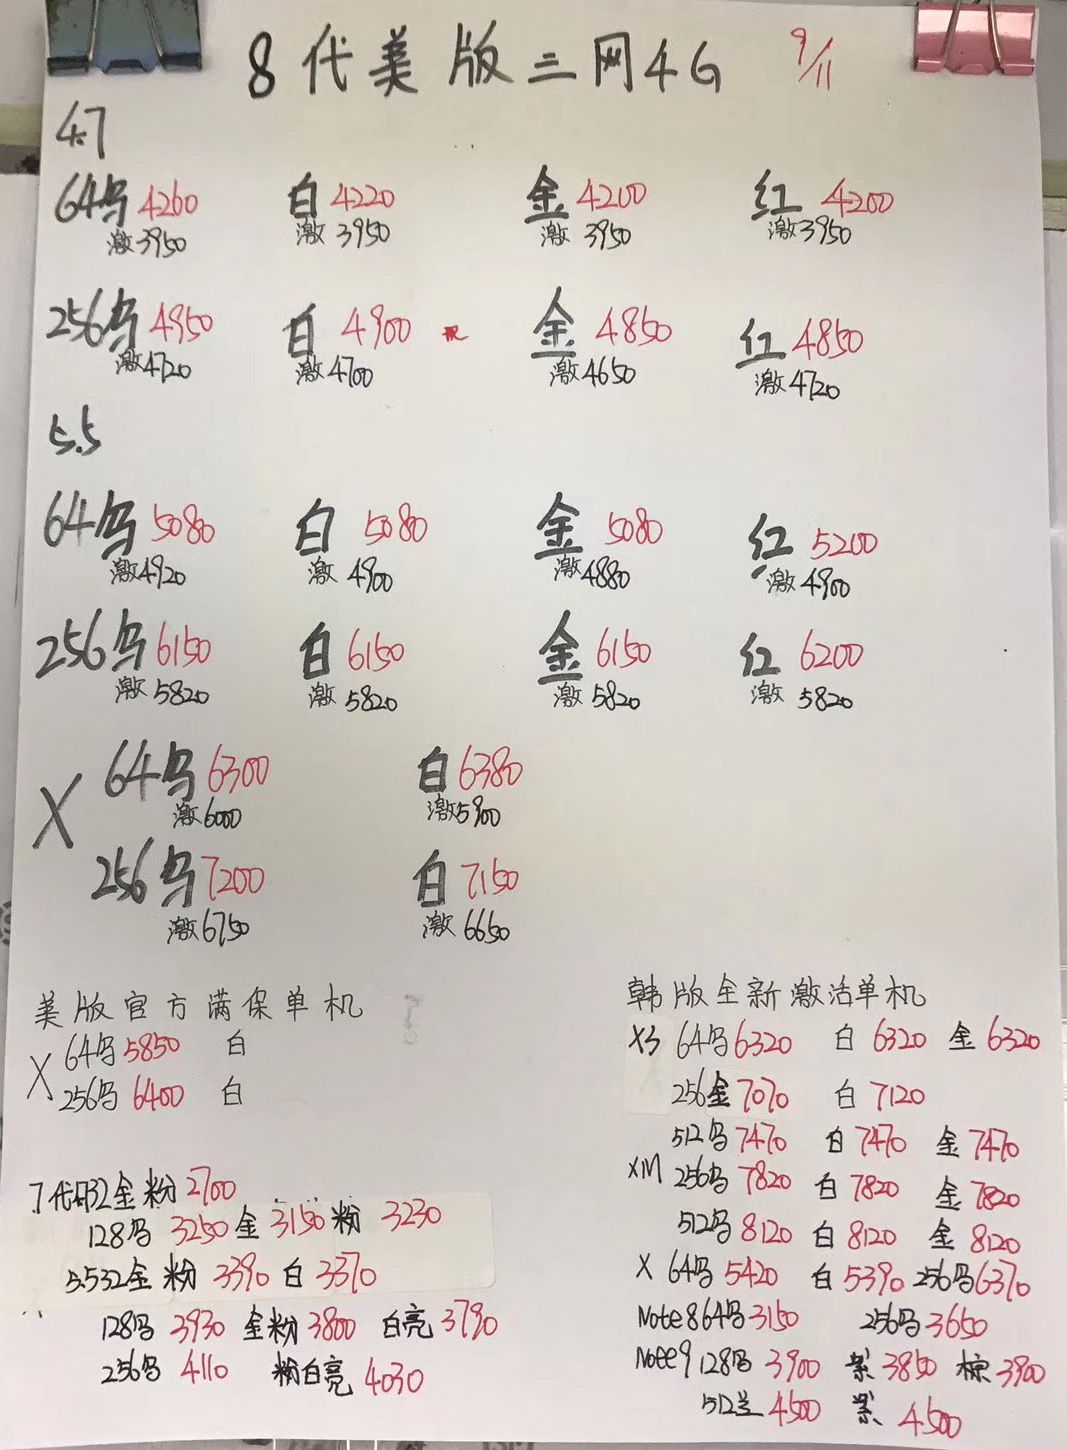 8代美版三网4G 9/11
4.7
64乌4260 白4220 金4200 红4200
激3950 激3950 激3950 激3950
256乌4950 白4900 金4850 红4850
激4720 激4700 激4650 激4720
5.5
64乌5080 白5080 金5080 红5200
激4920 激4900 激4880 激4900
256乌6150 白6150 金6150 红6200
激5820 激5820 激5820 激5820
X 64乌6300 白6380
激6000 激5900
256乌7200 白7150
激6750 激6650
美版官方满保单机
X 64乌5850 白
256乌6400 白
7代 32金粉2700
128乌3250 金3150 粉3230
5.5 32金粉3390 白3370
128乌3930 金粉3800 白亮3790
256乌4110 粉白亮4030
韩版全新激活单机
XS 64乌6320 白6320 金6320
256金7070 白7120
512乌7470 白7470 金7470
XM 256乌7820 白7820 金7820
512乌8120 白8120 金8120
X 64乌5420 白5390 256乌6370
Note8 64乌3150 256乌3650
Note9 128乌3900 紫3850 棕3900
512兰4500 紫4500